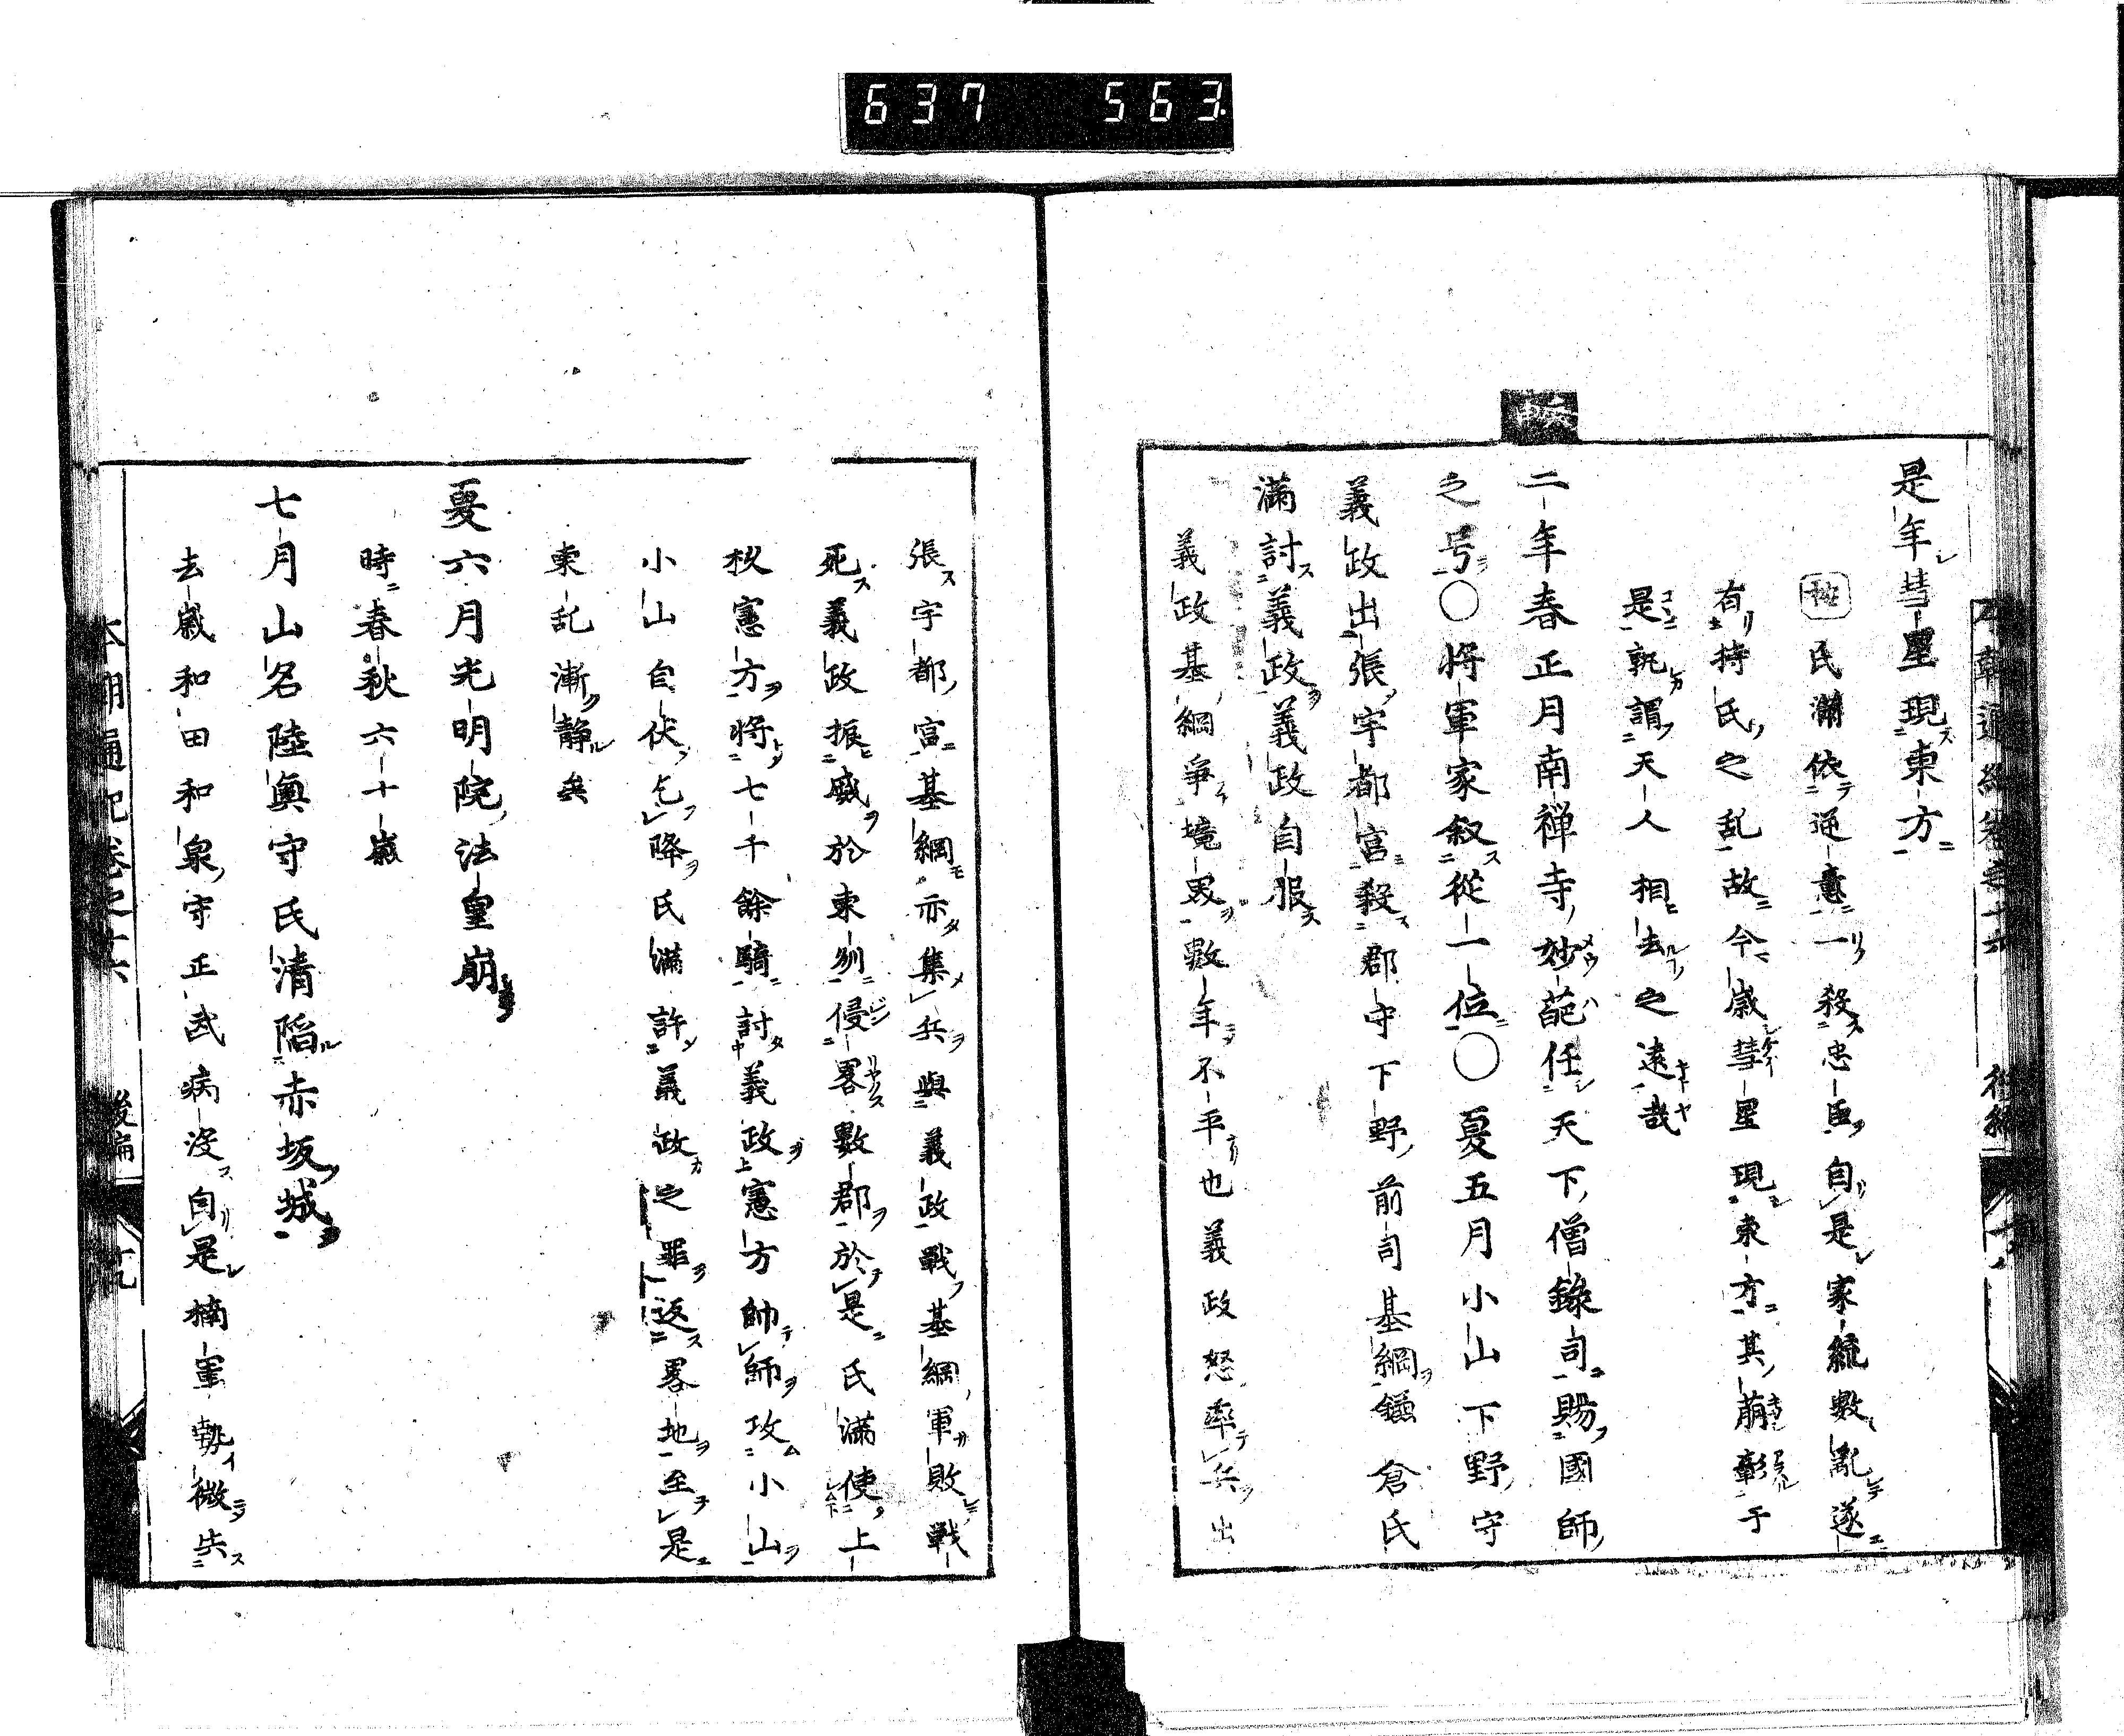 637 563
是年彗星現東方
氏満依逆意一殺忠臣自是家統數亂遂
有持氏之乱故今歳彗星現東方其萠彰于
是孰謂天人相去之遠哉
二年春正月南禅寺妙葩任天下僧錄司賜國師
之号○將軍家叙從一位○夏五月小山下野守
義政出張宇都宮殺郡守下野前司基綱鎌倉氏
滿討義政義政自服
義政基綱爭境畧數年不平也義政怒率兵出
張宇都宮基綱亦集兵與義政戰基綱軍敗戰
死義政振威於東州侵畧數郡於是氏滿使上
杦憲方將七千餘騎討義政憲方帥師攻小山
小山自伏乞降氏滿許義政之罪返畧地至是
東乱漸静矣
夏六月光明院法皇崩
時春秋六十歳
七月山名陸奧守氏清陷赤坂城
去歲和田和泉守正武病没自是楠軍勢微失
本朝通紀卷之十六 後編 十九